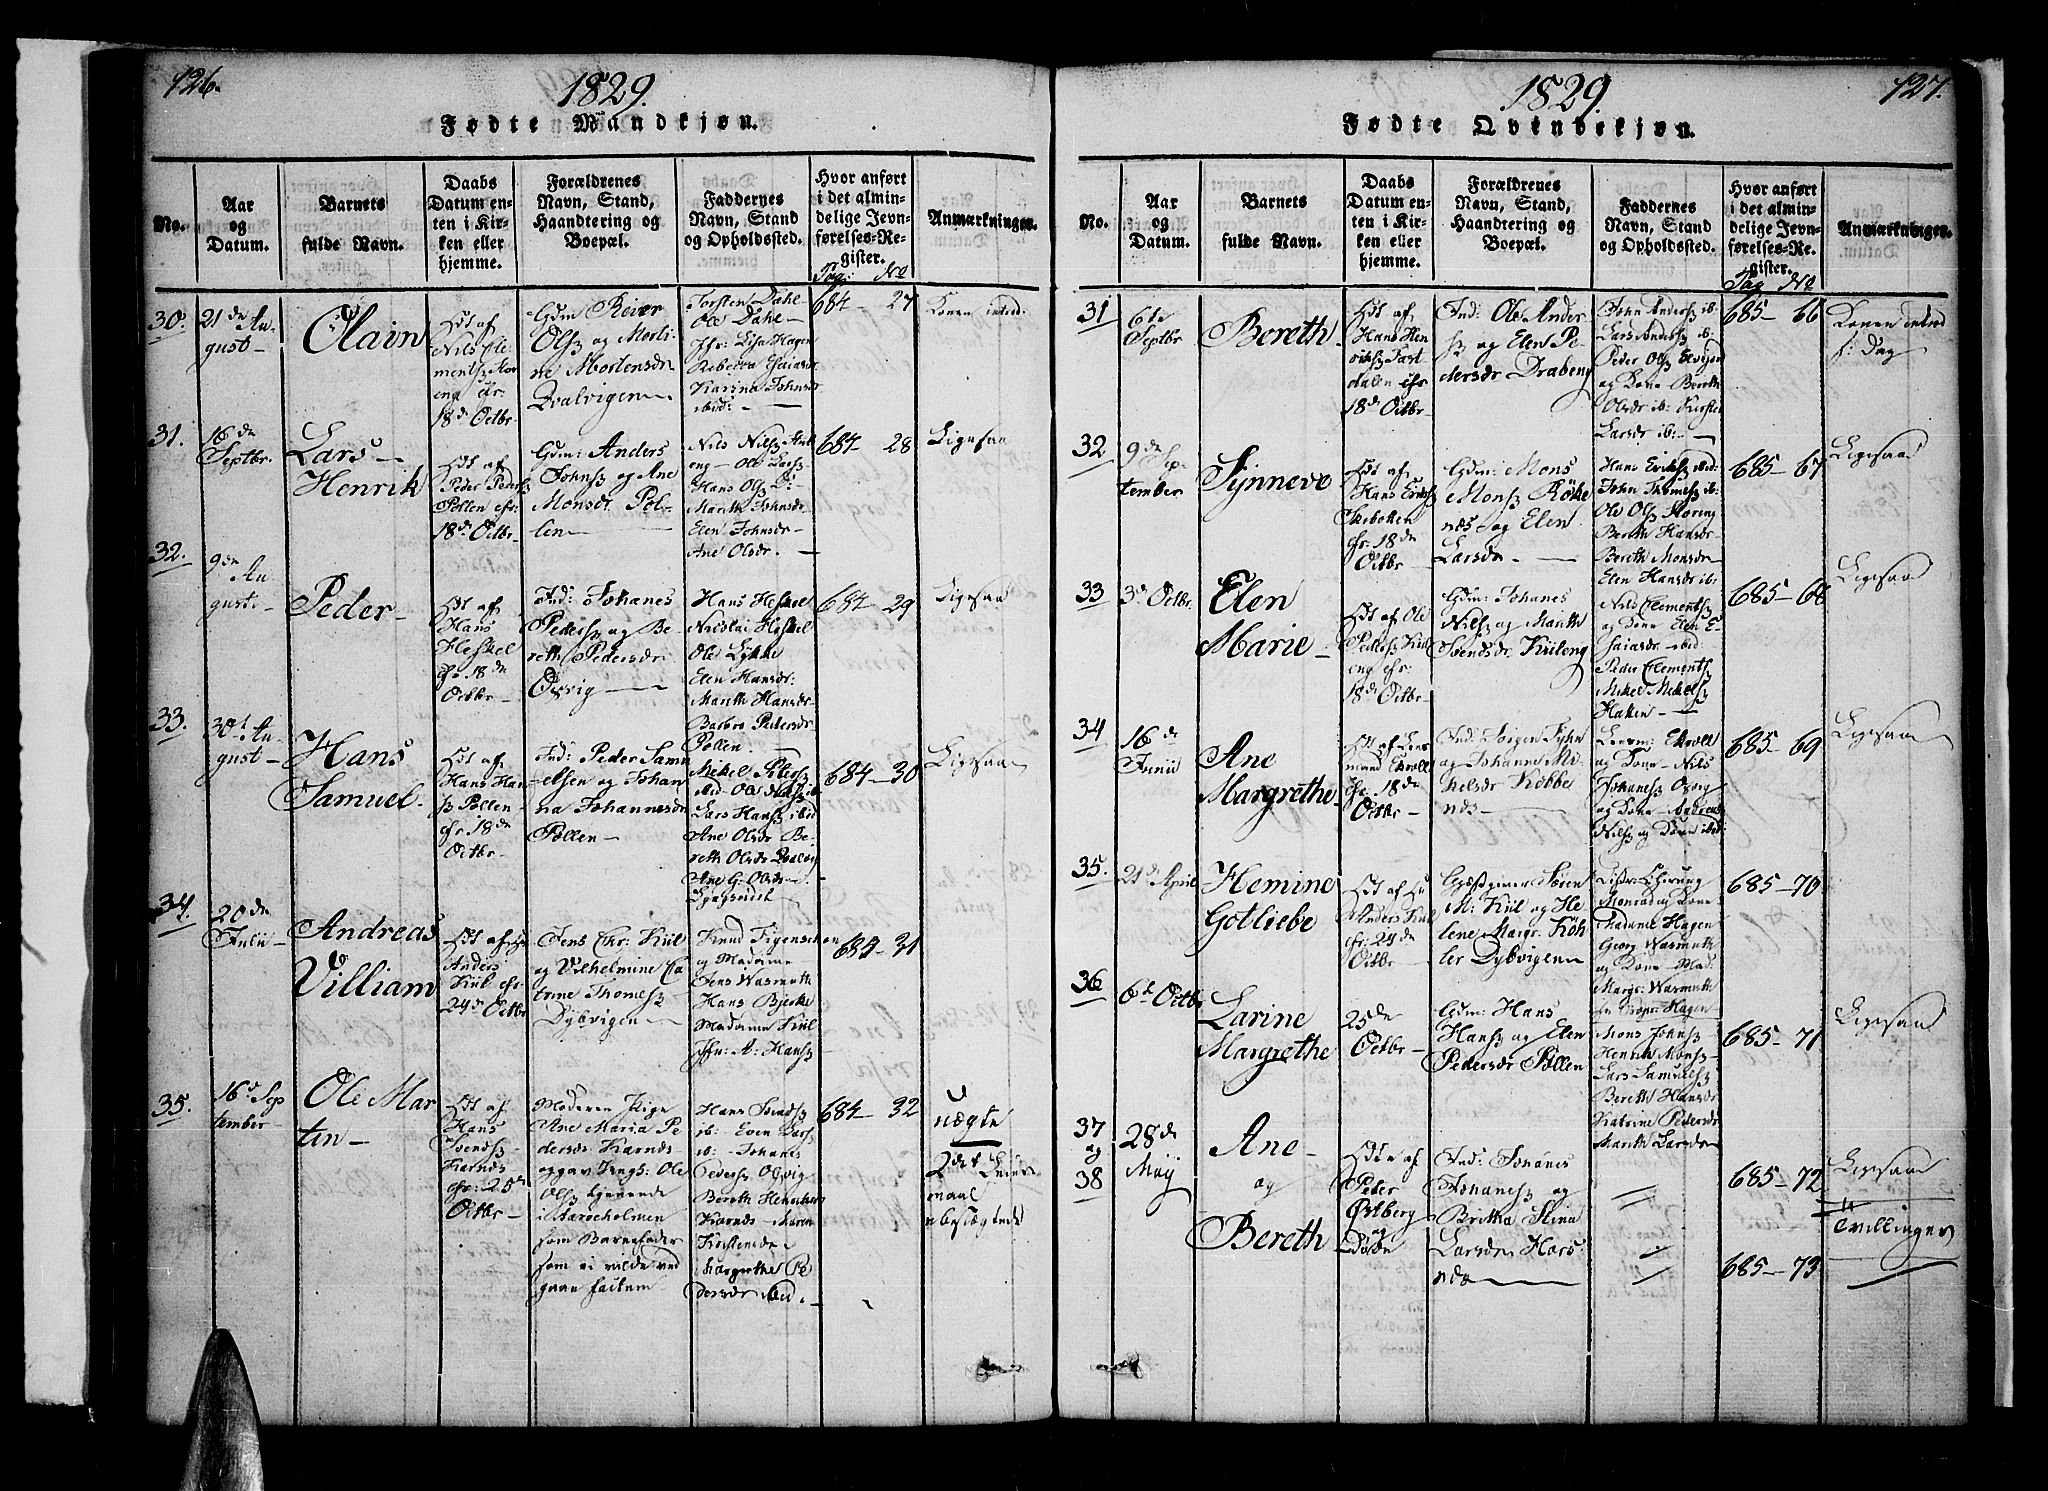 126.
1829.
Fødte Mandkjøn.
No.
Aar
og
Datum.
Barnets
fulde Navn.
Daabs
Datum en-
ten i Kir-
ken eller
hjemme.
Forældrenes
Navn, Stand,
Haandtering og
Boepæl.
Faddernes
Navn, Stand
og Opholdssted.
Hvor anført
i det almin-
delige Jevn-
førelses-Re-
gister.
Pag: No
Anmærkninger.
30.
21de Au-
gust-
Olain
Hdt af
Nils Cle-
ments
18de Octbr
Gdm Reier
Ols og Morti-
ne Mortensdr
Qvalvigen
Torsten Dahl-
Ole Dahl-
Jfr: Lisa Hagen
Rebecca Esaiasdr
Karina Johnsdr
ibid:
684- 27
Konen introd.
31.
16de
Septbr.
Lars-
Henrik
Hdt af
Peder Peders
Pollen chr:
18de Octbr
Gdm: Anders
Johns og Ane
Monsdr Pol-
len
Hans Ols D:-
Marith Johnsdr
Elen Johnsdr-
Ane Olsdr.-
684- 28
Ligesaa
32.
9de Au-
gusti-
Peder-
Hdt af
Hans
Heskel
chr 18de
Octbr-
Ind: Johanes
Peders og Be-
reth Pedersdr
Oxvig
Hans Heskel
Nicolai Heskel
Ole Lykke
Elen Hansdr:
Marith Hansdr
Barbro Pedersdr
Pollen.
684- 29
Ligesaa
33.
30te Au-
gust-
Hans
Samuel.
Hdt af
Hans Han-
s Pollen-
chr 18de
Octbr-
Ind: Peder Sam-
uelsen og Johan-
na Johannesdr
Pollen-
Mikel Peters
ibid Ole Hans ib
Lars Hans ibid
Ane Olsdr Be-
reth Olsdr Qvalvig
Ane G: Olsdr-
684- 30
Ligesaa
34.
20de
Julii-
Andreas
Villiam
Hdt af
Anders
Kiil chr
24de Octbr
Jens Chr: Kiil
og Vilhelmine Ca-
trine Thomes
Dybvigen
Knud Figenschou
og Madamme
Jens Warmuth
Hans Bjerke
Madamme Kiil
Jfr: A: Hans
684- 31
35.
16de Sep
tember-
Ole Mar
tin-
Hdt af
Hans
Svends
Karnes
chr: 25de
Octbr-
Moderen Pige
Ane Maria Pe-
dersdr Karnes
opgav Ungk: Ole
Ols tjenende
i Aarøeholmen
som Barnefader
som ei vilde ved
gaae factum
Hans Svends
ib: Even Lars
ib:- Johanes
Peders Olvig
Bereth Henrichsdr
Karnes- Maren
Kirstensdr
Margrethe Pe
dersdr ibid.-
684- 32
U
nægte
2det Leier
maal
ubesvogrede
127.
1829.
Fødte Qvindekjøn.
No.
Aar
og
Datum.
Barnets
fulde Navn.
Daabs
Datum en-
ten i Kir-
ken eller
hjemme.
Forældrenes
Navn, Stand,
Haandtering og
Boepæl.
Faddernes
Navn, Stand
og Opholdssted.
Hvor anført
i det almin-
delige Jevn-
førelses-Re-
gister.
Pag No
Anmærkninger.
31
6te
Septbr
Bereth
Hdt af
Hans Hen
riks Fast
dalen chr
18de Octbr-
Ind: Ole Ander
s og Elen Pe-
dersdr Drabeng
John Anders ib:
Lars Anders ib:
Peder Ols
og Kone Bereth
Olsdr ib: Kirsten
Larsdr ib:-
685- 66
Konen introd
s: Dag
32
9de Sep-
tember
Synneve
Hdt af
Hans Eriks
Skibotten
chr. 18de
Octbr
Gdm: Mons
Mons Røke
næs og Elen
Larsdr
Hans Eriks ibid.
John Thomes ib:
Ole Ols Storeng
Bereth Hansdr
Bereth Monsdr
Elen Hansdr ib:
685- 67
Ligesaa
33
3de Octbr.
Elen
Marie-
Hdt af Ole
Peders Kiil
eng chr:
18de Octbr-
Gdm: Johanes
Nils og Marith
Svendsdr Kiileng
Nils Clements
og Kone Elen E-
saiasdr ibid
Peder Clements
Mikel Mikels
Hatten
685- 68
Ligesaa
34
16de
Junii
Ane
Margrethe-
Hdt af Lens
mand Ekroll
chr. 18de
Octbr-
Ind: Jørgen
og Johanne Mi-
kelsdr Kobbe
næs
Lensm: Ekroll
og Kone- Nils
Johannes Oxvig
og Kone Andreas
Nils og Kone ibid:
685- 69
Ligesaa
35.
21de April
Hemine
Gotliebe
Hdt af
Anders Kiil
chr: 24de
Octbr
Gjæstgiver Søren
M: Kiil og He
lene Margr: Køh
ler Dybvigen
Distr: Chirurg
Monrad og Kone
Madame Hagen
Georg Warmuth
og Kone Mad:
Marg: Warmuth
Hagen
685- 70
36
6te Octbr
Larine
Margrethe
25de
Octbr-
Gdm: Hans
Hans og Elen
Pedersdr Pollen
Mons Johns
Henrik Mons-
Lars Samuels
Bereth Hansdr
Katrine Pedersdr
Marith Larsdr
685- 71
Ligesaa
37
og
38
28de
Maij
Ane-
og
Bereth
Hdte af
Peder
Østberg
og
Døde
Ind: Johanes
Johanes og
Britha Stina
Larsdr Hors
næs
685- 72
Ligesaa
Tvillinger
685- 73